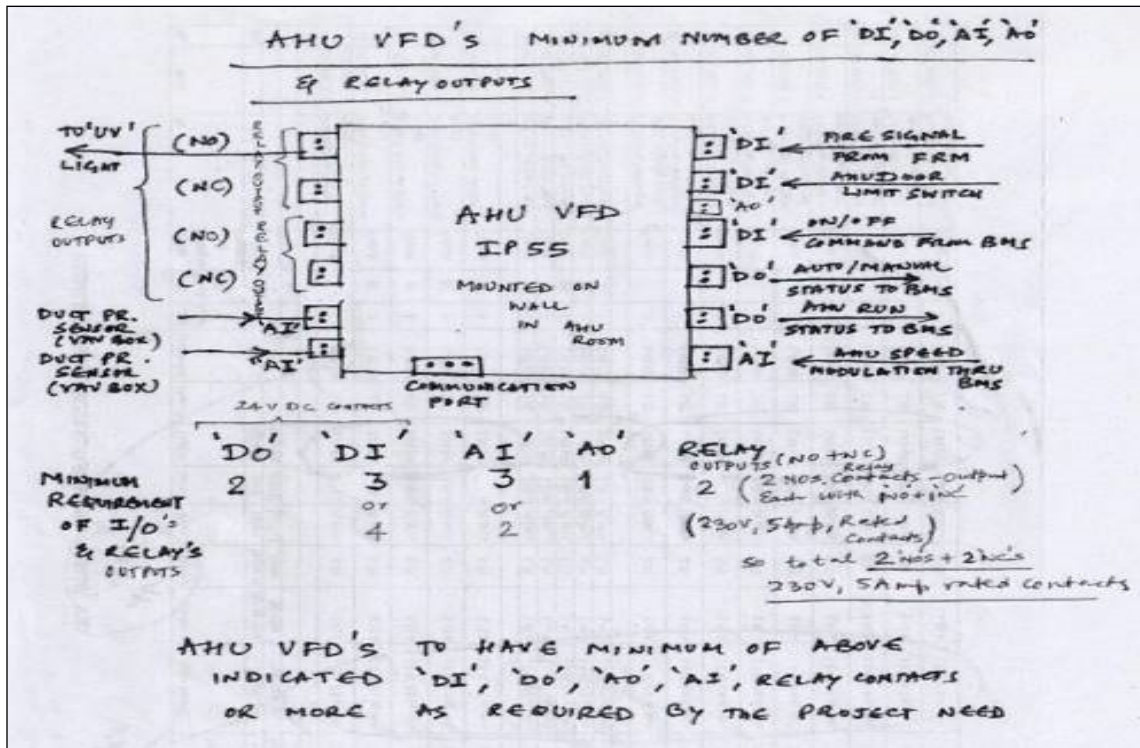 AHU VFD'S MINIMUM NUMBER OF 'DI', 'DO', 'AI', 'AO'
& RELAY OUTPUTS
TO 'UV'
LIGHT
RELAY
OUTPUTS
(NO)
(NC)
(NO)
(NC)
DUCT PR.
SENSOR
(VAV BOX)
DUCT PR.
SENSOR
(VAV BOX)
'AI'
'AI'
AHU VFD
IP55
MOUNTED ON
WALL
IN AHU
ROOM
COMMUNICATION
PORT
'DI' FIRE SIGNAL
FROM FRM
'DI' AHU DOOR
LIMIT SWITCH
'AO'
'DI' ON/OFF
COMMAND FROM BMS
'DO' AUTO/MANUAL
STATUS TO BMS
'DO' AHU RUN
STATUS TO BMS
'AI' AHU SPEED
MODULATION THRU
BMS
24V DC CONTACTS
'DO' 'DI' 'AI' 'AO' RELAY
OUTPUTS (NO+NC)
MINIMUM
REQUIREMENT
OF I/O's
& RELAY'S
OUTPUTS
2 3 3 1 2 (2 NOS. Relay Contacts - output)
Each with NO+NC
or or
4 2 (230V, 5Amp, Rated
Contacts)
so total 2 NO's + 2 NC's
230V, 5Amp rated contacts
AHU VFD'S TO HAVE MINIMUM OF ABOVE
INDICATED 'DI', 'DO', 'AO', 'AI', RELAY CONTACTS
OR MORE AS REQUIRED BY THE PROJECT NEED